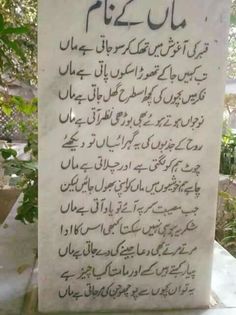 ماں کے نام
قبر کی آغوش میں تھک کر سو جاتی ہے ماں
تب کہیں جا کے تھوڑا سکوں پاتی ہے ماں
فکر میں بچوں کی کچھ اسطرح گھل جاتی ہے ماں
نوجواں ہوتے ہوئے بھی بوڑھی نظر آتی ہے ماں
روح کے جذبوں کی یہ گہرائیاں تو دیکھئے
چوٹ ہم کو لگتی ہے اور چلاتی ہے ماں
چاہے ہم خوشیوں میں ماں کو بھی بھول جائیں لیکن
جب مصیبت سر پہ آئے تو یاد آتی ہے ماں
شکریہ ہو ہی نہیں سکتا کبھی اس کا ادا
مرتے مرتے بھی دعا جینے کی دے جاتی ہے ماں
پیار کہتے ہیں کسے اور مامتا کیا چیز ہے
یہ تو ان بچوں سے پوچھو جن کی مر جاتی ہے ماں